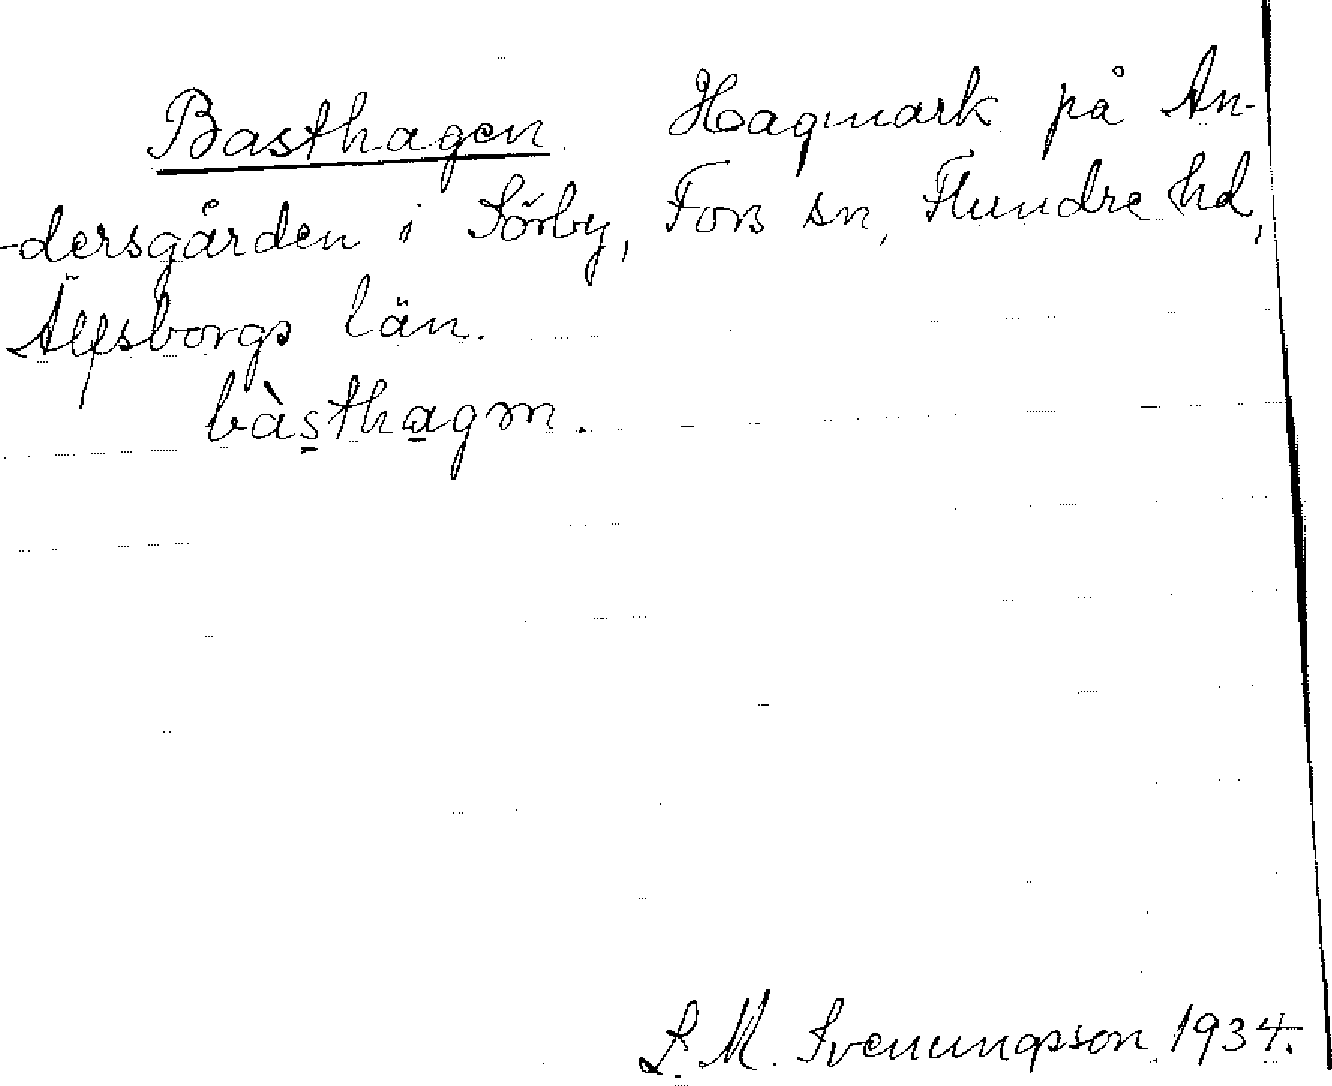 Basthagen Hagmark på An-
-dersgården i Sörby, Fors sn, Flundre hd,
Älfsborgs län.
bàsthagm.
S. M. Svenungsson 1934.